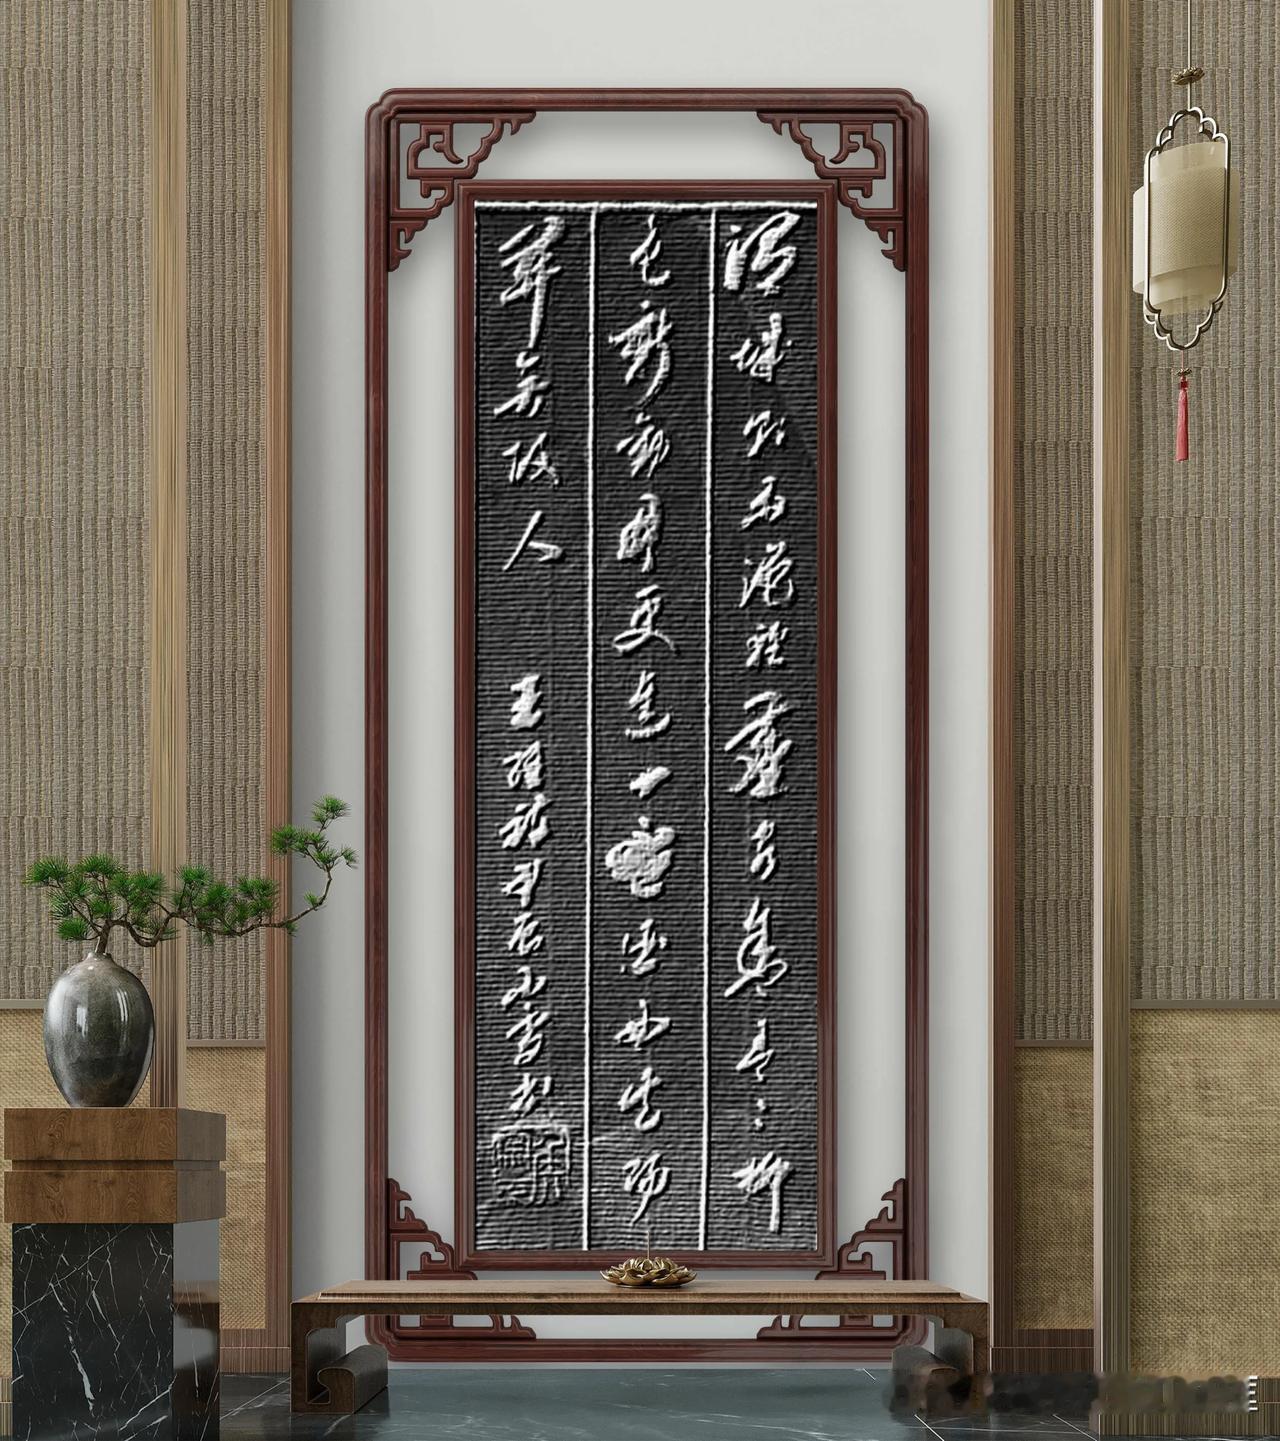 渭城朝雨浥轻尘客舍青々柳
色新劝君更尽一杯酒西出阳
关无故人 王维诗甲辰小雪书